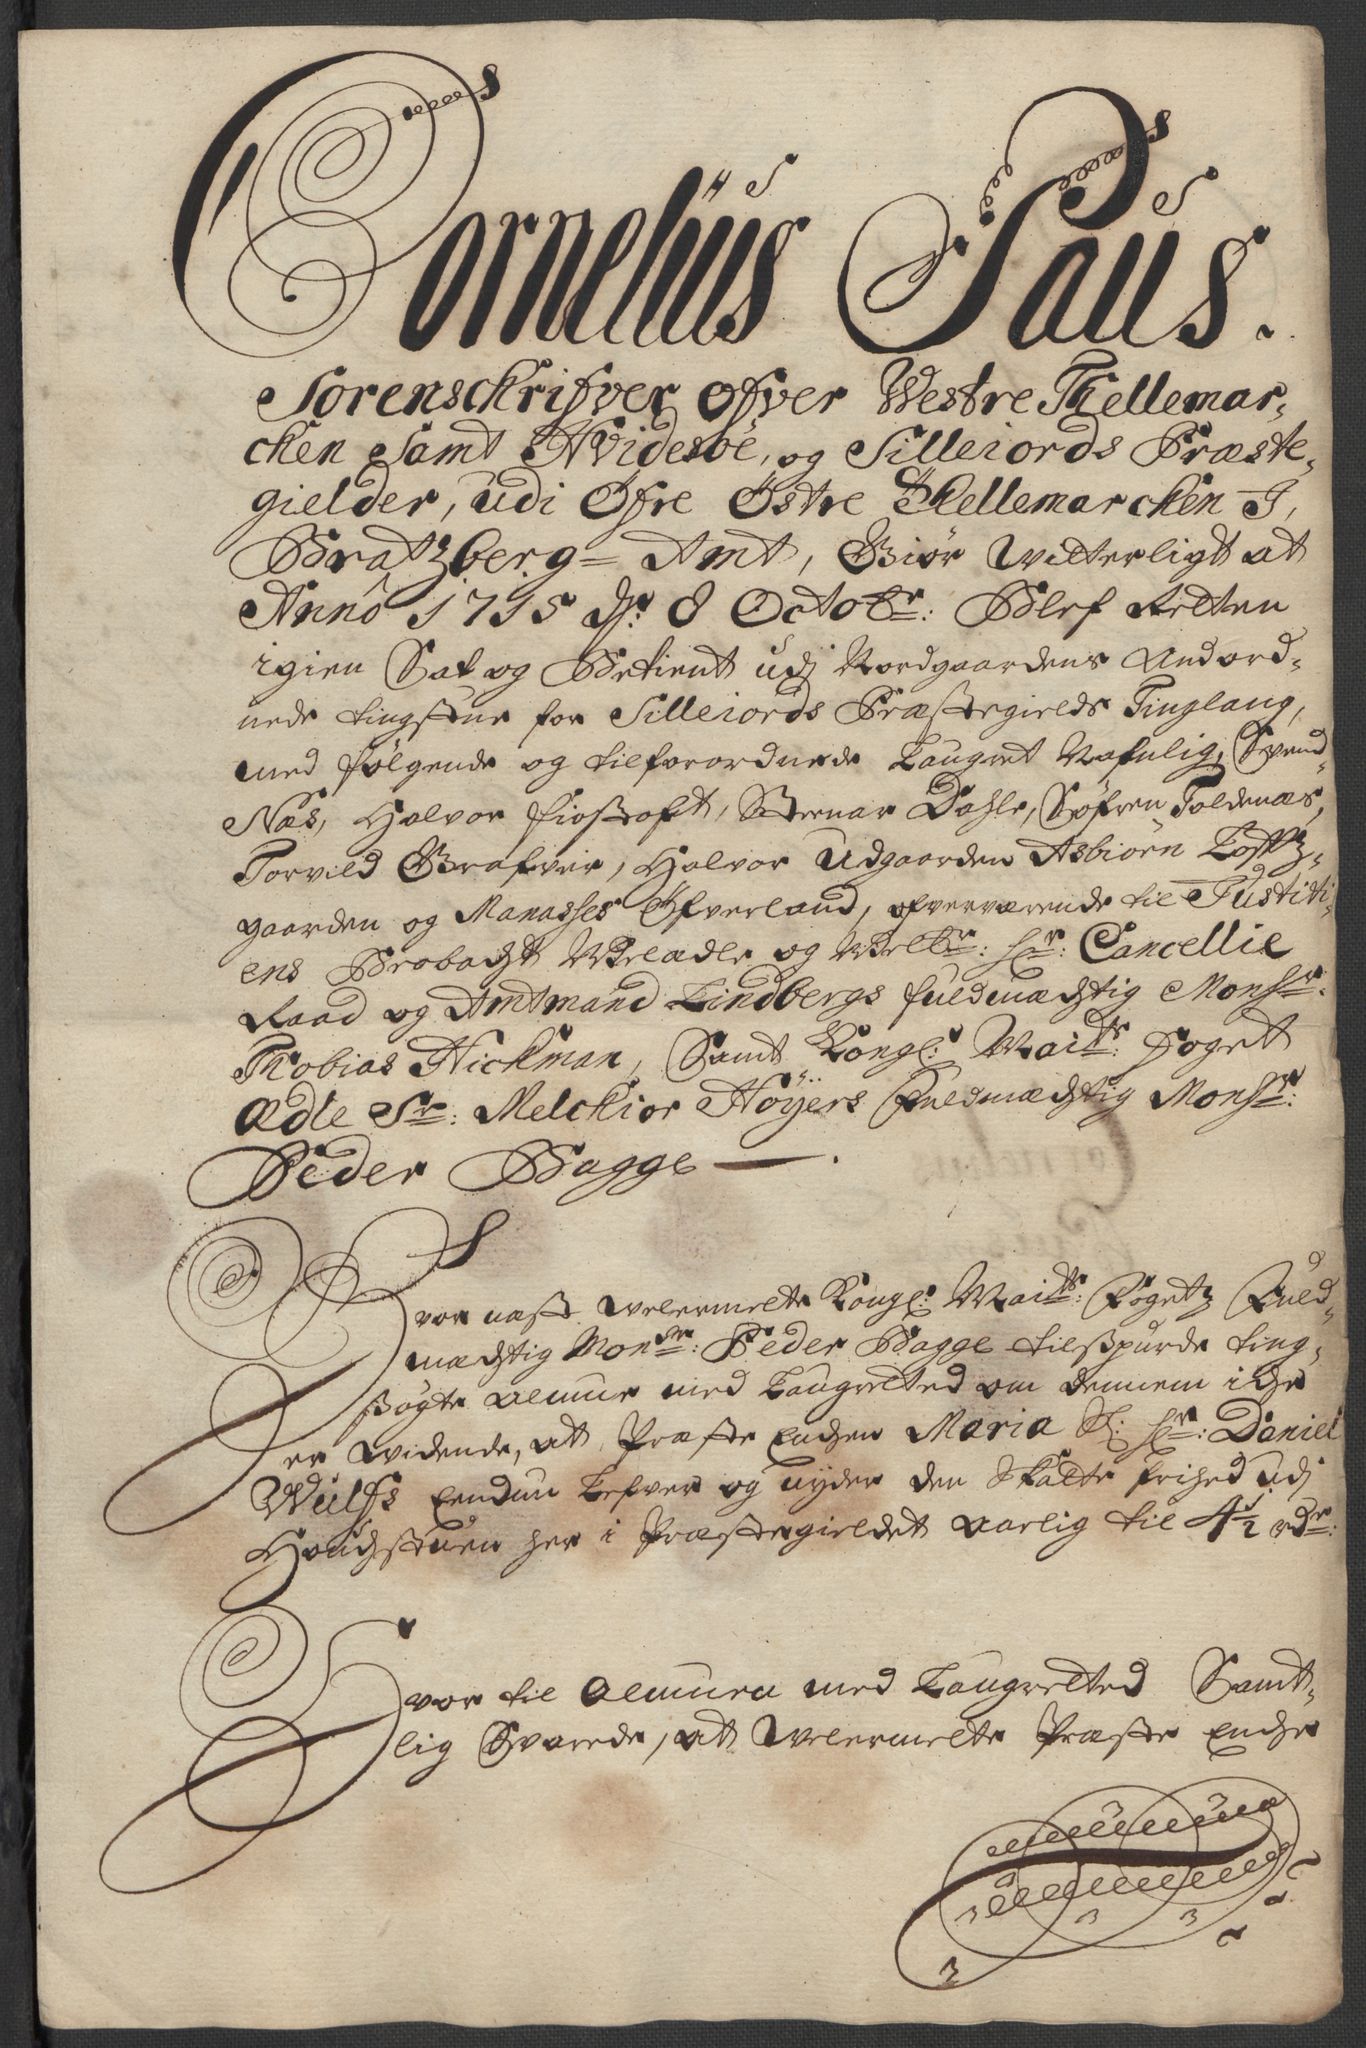 Cornelius Paus.
Sorenschrifver ofver Westre Tellemar-
cken Samt Hvidesöe, og Silleiords Præste-
gielder, udi Öfre Östre Thellemarcken I,
Bratzberg= Amt, Giör Witterligt at
Anno 1715 d: 8 Octobr: Blef Retten
igien Sat og Betient udj Nordgaardens Anord-
nede tingstue for Silleiords Præstegields Tinglaug,
med følgende og tilforordnede Laugret Nafnlig, Svend
Næs, Halvor , Steenar Dahle, Söfren Foldenæs,
Torvild Grafver, Halvor Udgaarden Asbiörn Lofftz-
gaarden og Manasses Öfverland, ofverværende til Justiti-
ens Velædle og Velbr: Hr: Cancellie
Raad og Amtmand Lindbergs fuldmæchtig Monsr:
Tobias Hickman, Samt Kongl: Maits: foget
Ædle Sr: Melchior Höyers Fuldmæchtig Monsr:
Peder Bagge
vor næst velermelte Kongl: Maits: Fogetz Fuld-
mæchtig Monsr: Peder Bagge tilspurde ting-
søgte Almue med Laugretted om dennem iche
er vidende, at Præste Enchen Maria Sl: Hr: Daniel
Wulfs endnu Lefver og nyder den Skatte frihed udj
her i Præstegieldet aarlig til 4½ rdr:
vor til Almuen med Laugretted Samt-
lig Svarede, at Velermelte Præste Enche